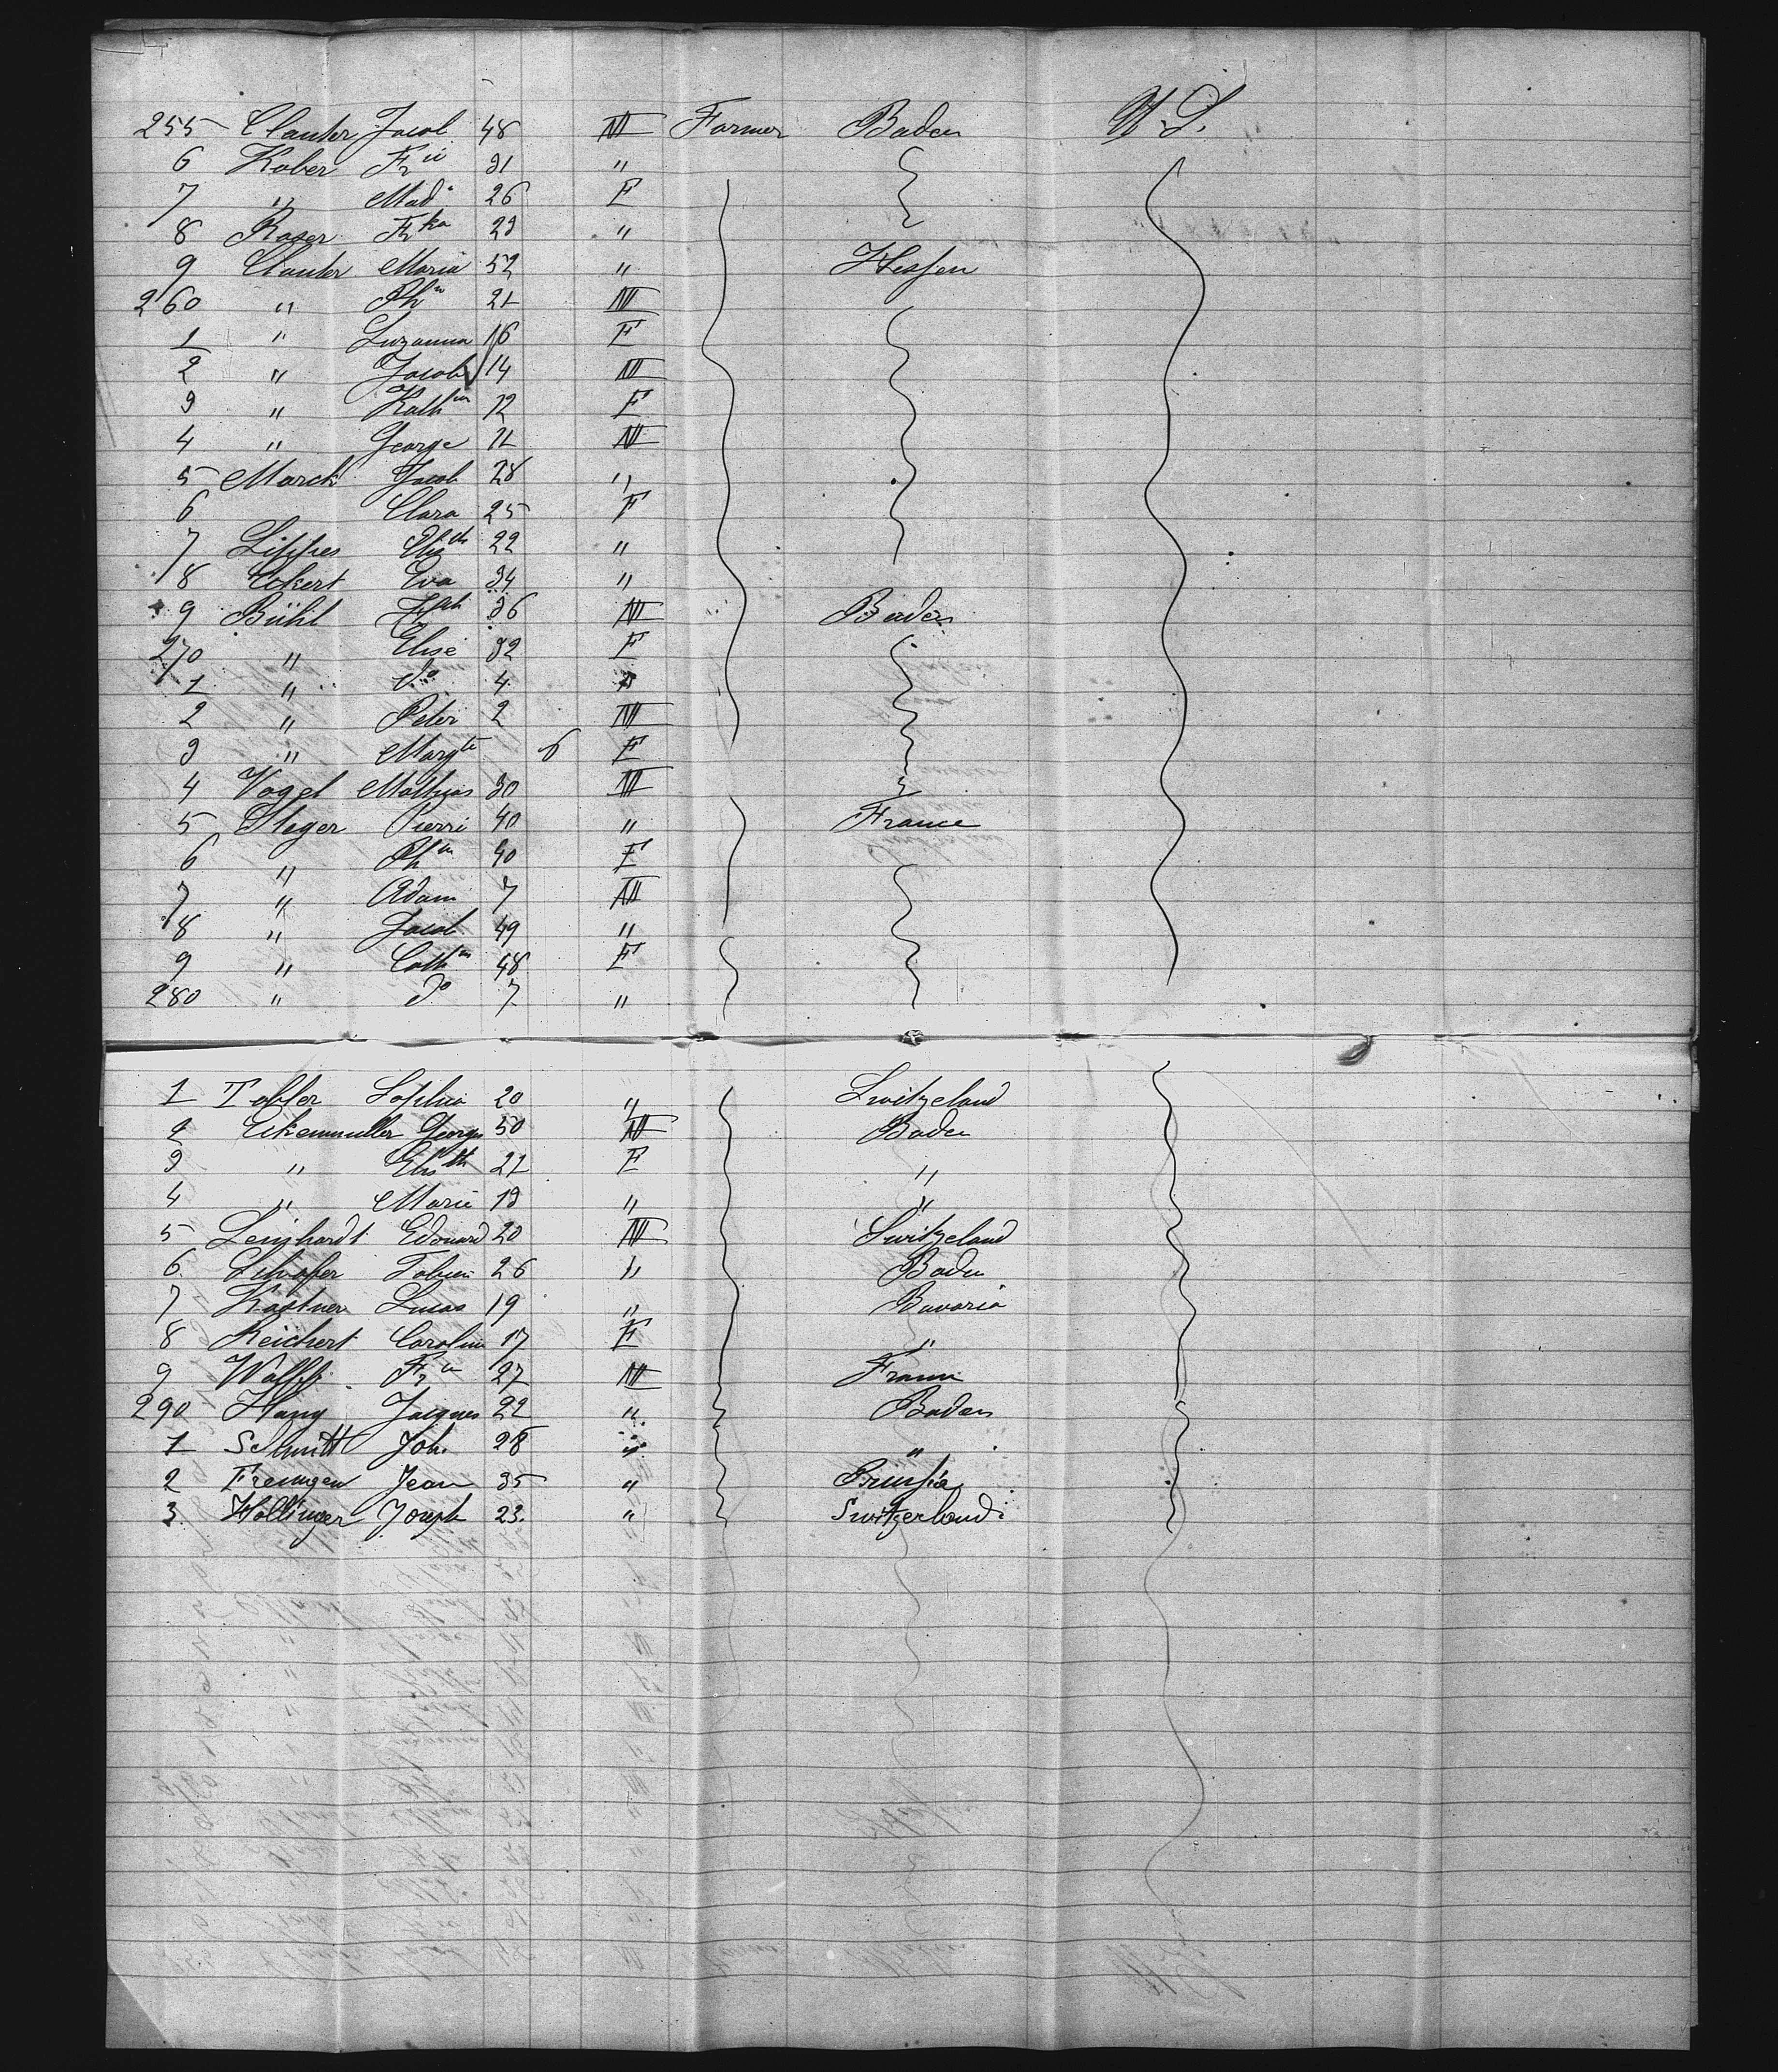 255 Clauter Jacob 48 M Farmer Baden U.S.
6 Kober Fr 31 "
7 " Mad 26 F
8 Roser Frka 23 "
9 Clauter Maria 52 " Hessen
260 " Ph 21 M
1 " Suzanna 16 F
2 " Jacob 14 M
3 " Kath 12 F
4 " George 11 M
5 March Jacob 28 "
6 Clara 25 F
7 22 "
8 Eckert Eva 34 "
9 Bühl 36 M Baden
270 " Elise 32 F
1 " do 4 "
2 " Peter 2 M
3 " Margte 6 F
4 Vogel Mathias 30 M
5 Steger Pierre 40 " France
6 " Ph 40 F
7 " Adam 7 M
8 " Jacob 49 "
9 " Cath 48 F
280 " do 7 "
1 Tobler Sophia 20 " Switzeland
2 Eikenmuller George 50 M Baden
3 " Elisth 21 F "
4 " Marie 19 " "
5 Leinhardt Edouard 20 M Switzeland
6 Schafer 26 " Baden
7 Kastner Lucas 19 " Bavaria
8 Reichert Caroline 17 F "
9 Wolff Fr 27 M France
290 Hang Jacques 22 " Baden
1 Schmitt Joh. 28 " "
2 Fremgen Jean 35 " Prussia
3 Hollinger Joseph 23. " Switzerland